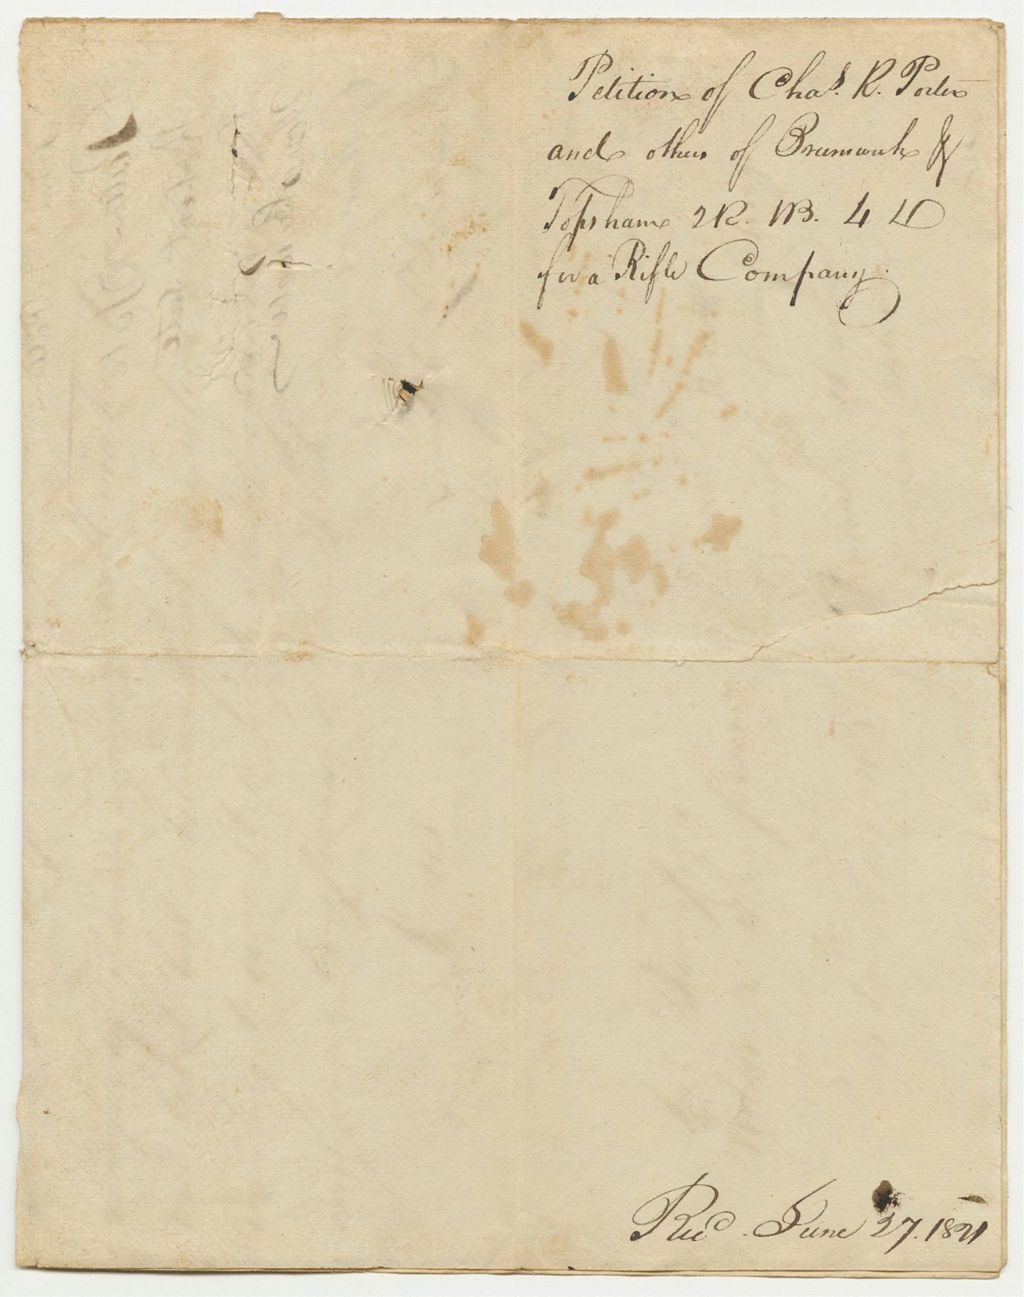 Petition of Chas. R. Porter
and others of Brunswick &
Topsham 2 R. 1 B. 4 D
for a Rifle Company.
Recd. June 27. 1821